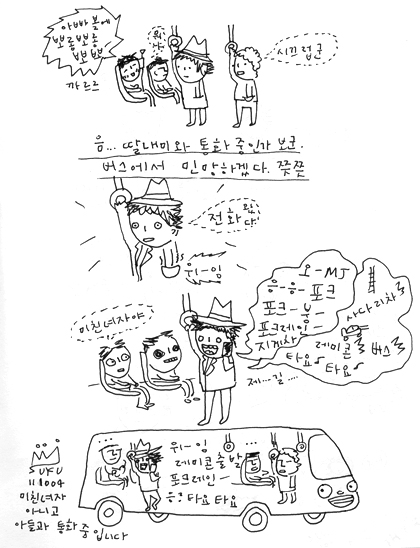 아빠 볼에
뽀뽀뽀
까르르
뭐야
시끄럽군
음... 딸내미와 통화중인가 보군.
버스에서 민망하겠다. 쯧쯧
전화 왔다.
위~잉
미친여자야
오~MJ
응~응~ 포크
포크~ 북
포크레인~
지게차
사다리차
레미콘
버스
타요♪
타요♪
제...길...
위~잉
레미콘 출발
포크레인~
응? 타요 타요
SUKU
111004
미친여자
아니고
아들과 통화중
입니다